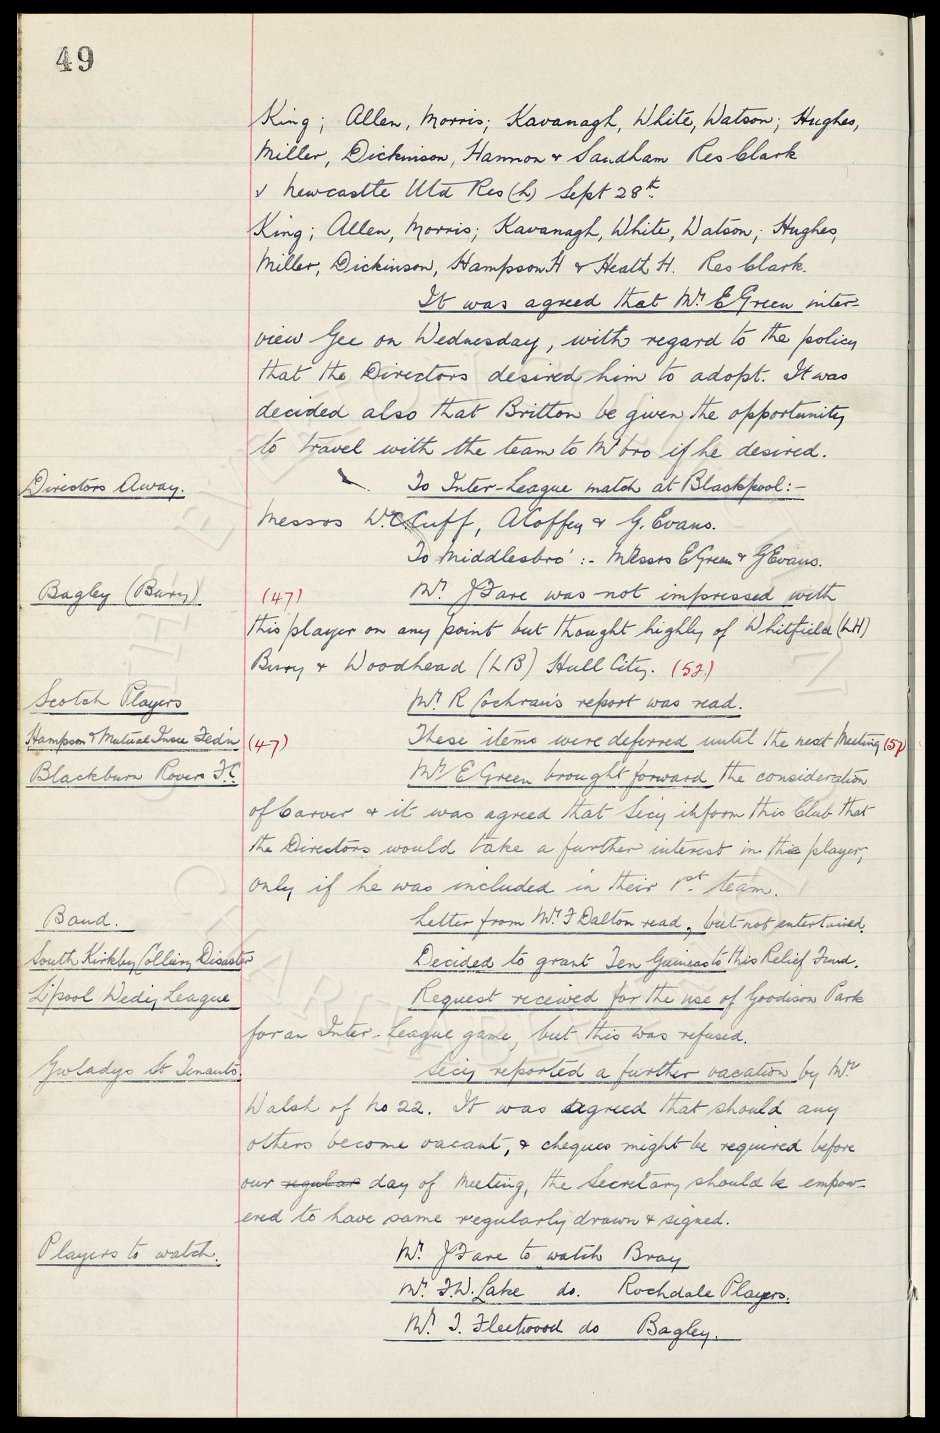 49
King; Allen, Morris; Kavanagh, White, Watson; Hughes,
Miller, Dickinson, Hannon & Sandham Res Clark
v Newcastle Utd Res (L) Sept 28th.
King; Allen, Morris; Kavanagh, White, Watson; Hughes,
Miller, Dickinson, Hampson H & Heath H. Res Clark.
It was agreed that Mr. E Green inter-
view Gee on Wednesday, with regard to the policy
that the Directors desired him to adopt. It was
decided also that Britton be given the opportunity
to travel with the team to M'bro if he desired.
Directors Away. To Inter-League match at Blackpool:-
Messrs W.C. Cuff, A Coffey & G. Evans.
To Middlesbro':- Messrs E Green & G Evans.
Bagley (Bury) (47) Mr. J Fare was not impressed with
this player on any point but thought highly of Whitfield (LH)
Bury & Woodhead (LB) Hull City. (52)
Scotch Players Mr. R Cochran's report was read.
Hampson & Mutual Insce Fed'n (47) These items were deferred until the next Meeting (51)
Blackburn Rovers F.C Mr E Green brought forward the consideration
of Carver & it was agreed that Secy inform this Club that
the Directors would take a further interest in this player,
only if he was included in their 1st team.
Band. Letter from Mr F Dalton read, but not entertained.
South Kirkby Colliery Disaster Decided to grant Ten Guineas to this Relief Fund.
L'pool Wedy League Request received for the use of Goodison Park
for an Inter-League game, but this was refused.
Gwladys St Tenants. Secy reported a further vacation by Mr
Walsh of No 22. It was agreed that should any
others become vacant, & cheques might be required before
our regular day of Meeting, the Secretary should be empow-
ered to have same regularly drawn & signed.
Players to watch. Mr. J Fare to watch Bray
Mr. F.W. Lake do. Rochdale Players.
Mr. T. Fleetwood do Bagley.